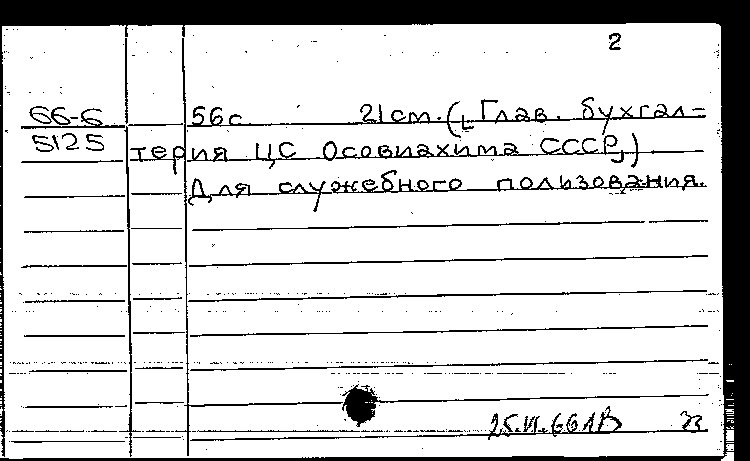 2
66-6 56с 21см. ([Глав. бухгал-
5125 терия ЦС Осовиахима СССР])
Для служебного пользования.
25.VI.66